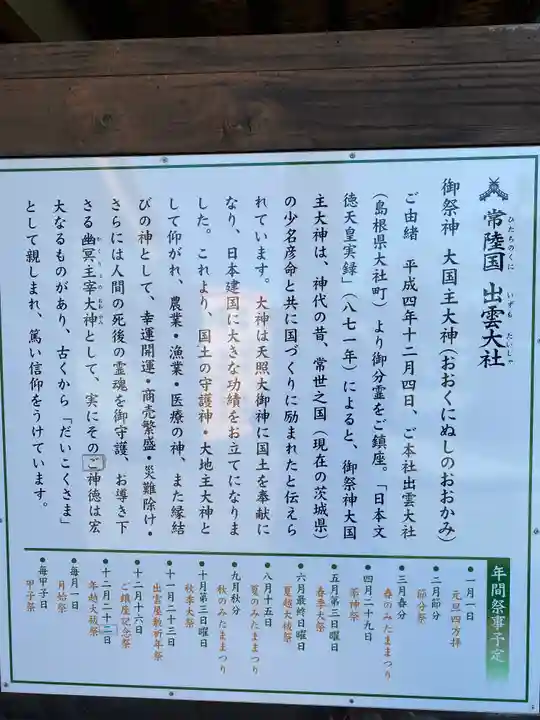 常陸国 出雲大社
ひたちのくに いずも たいしゃ
御祭神 大国主大神(おおくにぬしのおおかみ)
ご由緒 平成四年十二月四日、ご本社出雲大社
(島根県大社町)より御分霊をご鎮座。「日本文
徳天皇実録」(八七一年)によると、御祭神大国
主大神は、神代の昔、常世之国(現在の茨城県)
の少名彦命と共に国づくりに励まれたと伝えら
れています。大神は天照大御神に国土を奉献に
なり、日本建国に大きな功績をお立てになりま
した。これより、国土の守護神・大地主大神と
して仰がれ、農業・漁業・医療の神、また縁結
びの神として、幸運開運・商売繁盛・災難除け・
さらには人間の死後の霊魂を御守護、お導き下
さる幽冥主宰大神として、実にそのご神徳は宏
大なるものがあり、古くから「だいこくさま」
として親しまれ、篤い信仰をうけています。
年間祭事予定
●一月一日
元旦四方拝
●二月節分
節分祭
●三月春分
春のみたままつり
●四月二十九日
薬神祭
●五月第三日曜日
春季大祭
●六月最終日曜日
夏越大祓祭
●八月十五日
夏のみたままつり
●九月秋分
秋のみたままつり
●十月第三日曜日
秋季大祭
●十一月二十三日
出雲屋敷祈年祭
●十二月十六日
ご鎮座記念祭
●十二月二十二日
年越大祓祭
●毎月一日
月始祭
●毎甲子日
甲子祭